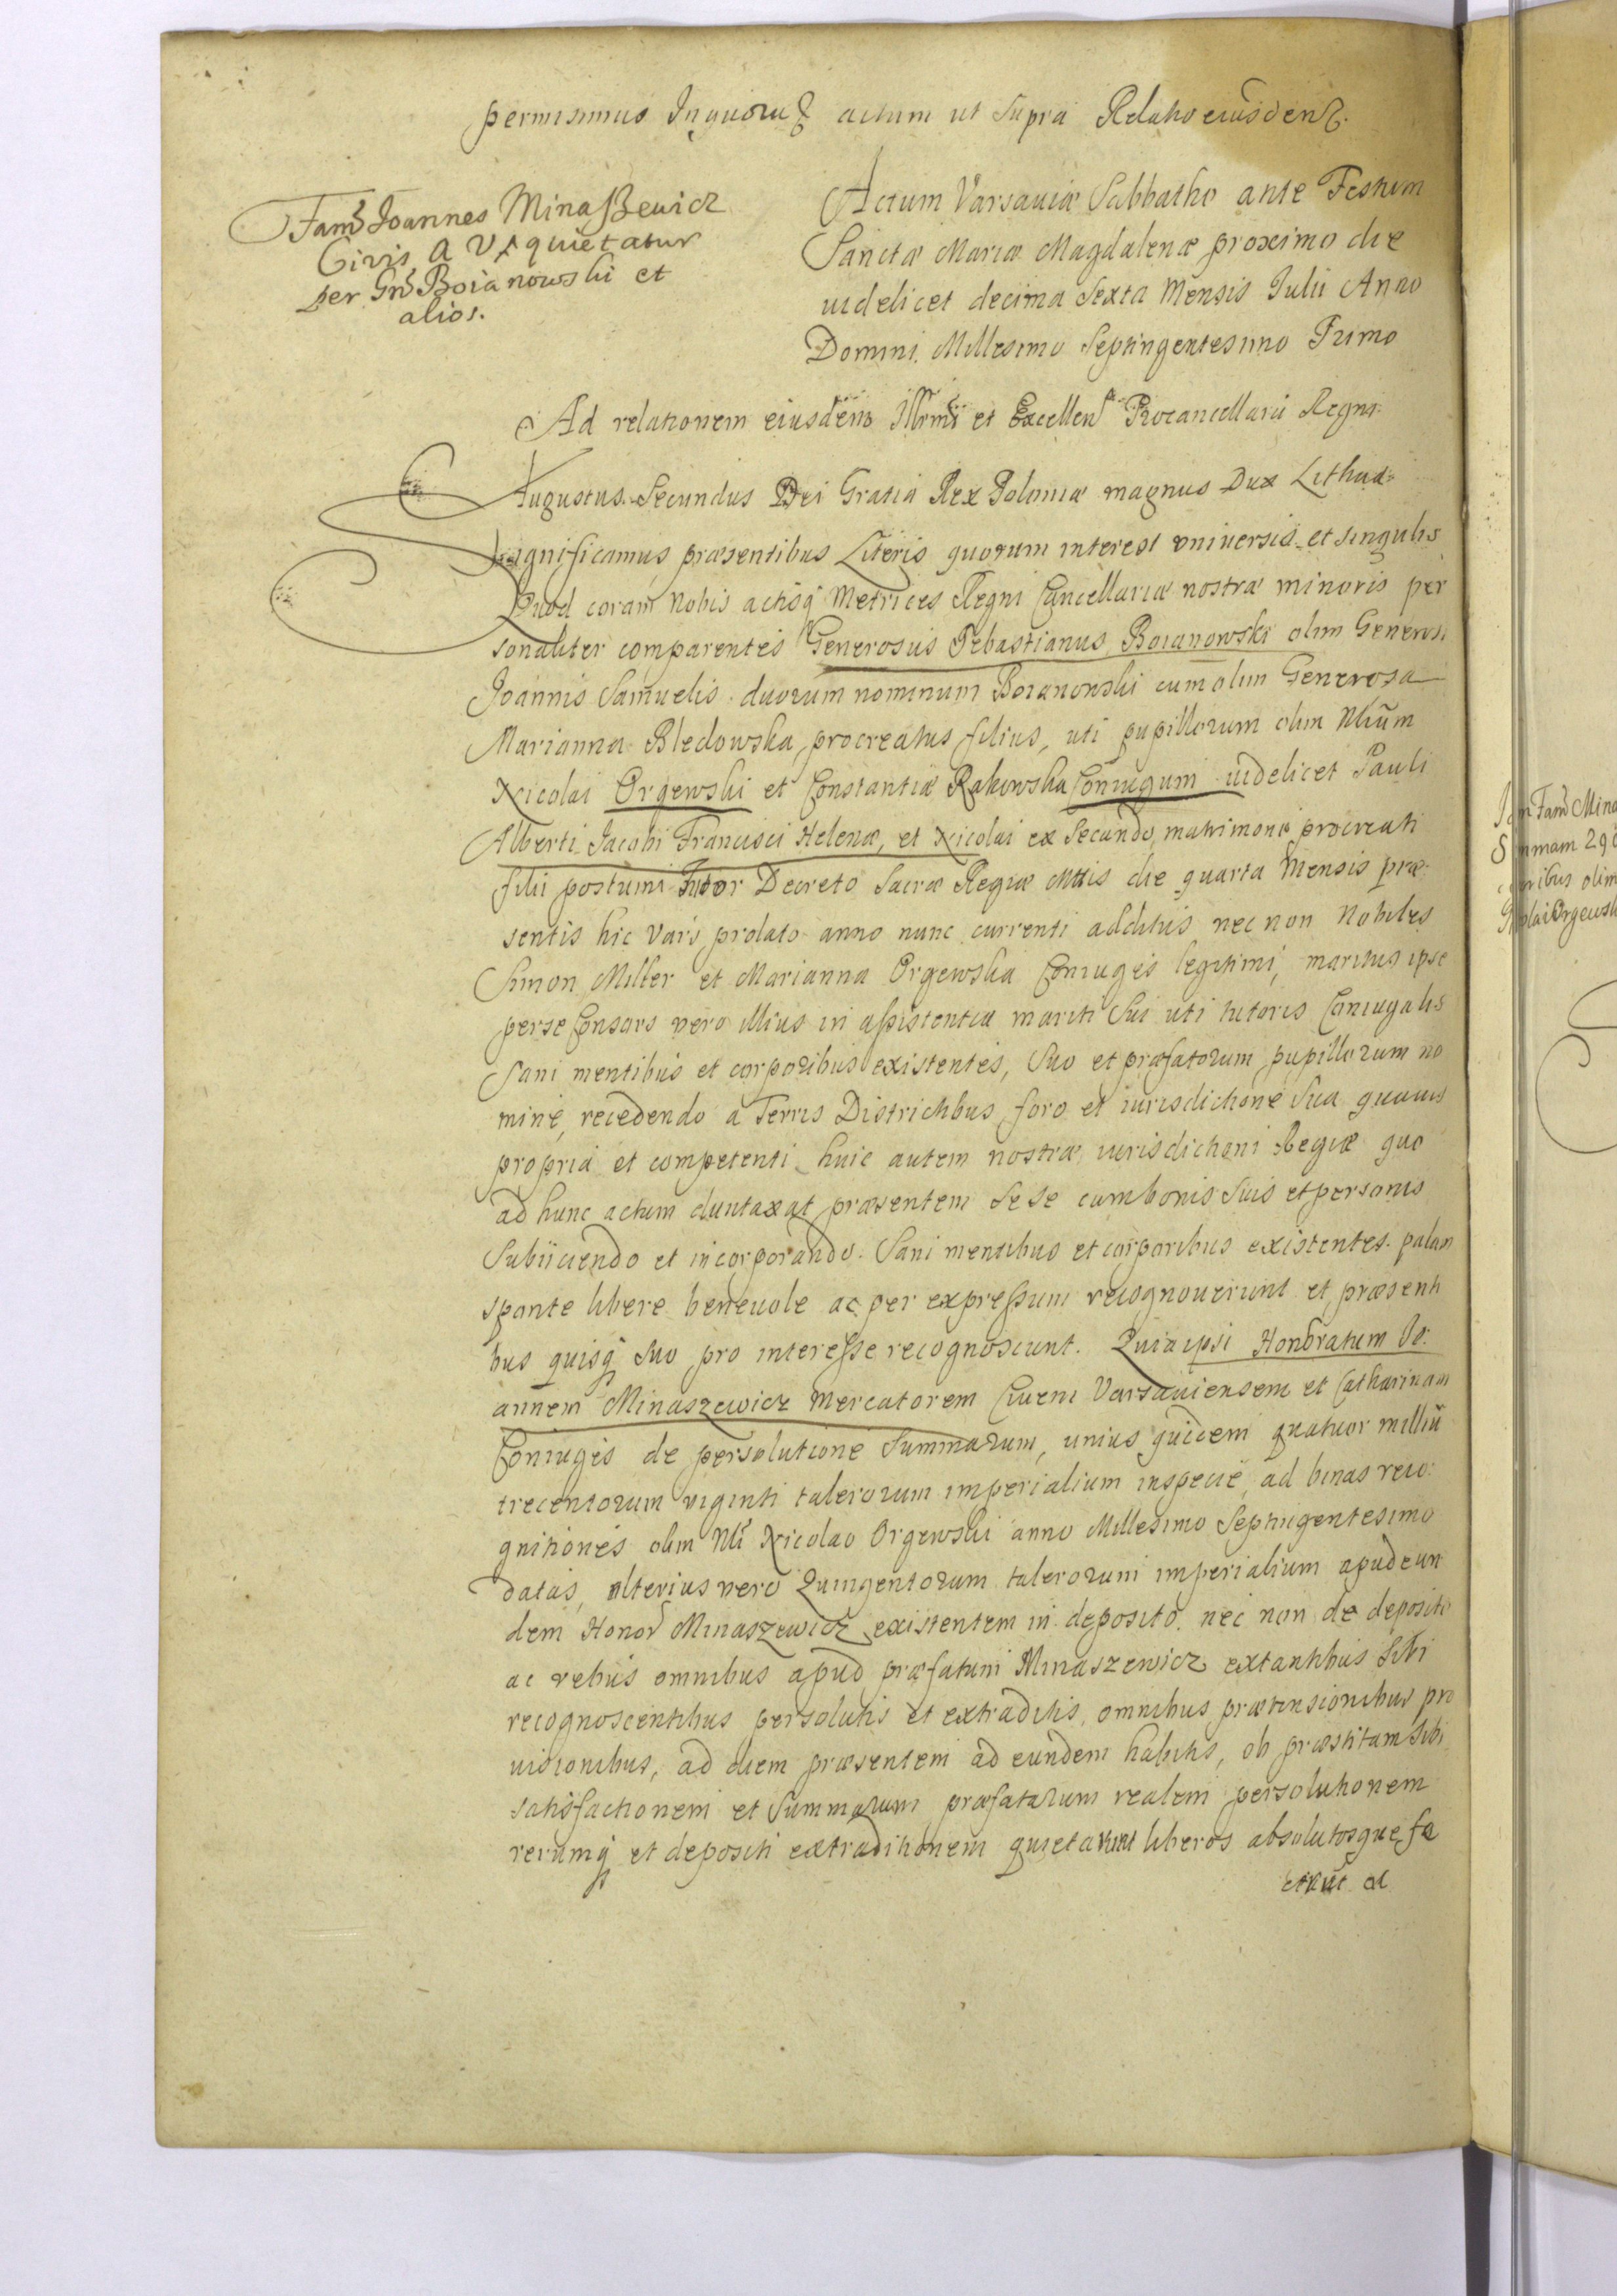 permisimus In quorum actum ut supra Relatio eiusdem.
Fam Joannes Minaßewicz
Civis A V quietatur
per Gn Boianowski et
alios.
Actum Varsaviæ Sabbatho ante Festum
Sanctæ Mariæ Magdalenæ proximo die
uidelicet decima Sexta Mensis Julii Anno
Domini Millesimo Septingentesimo Primo
Ad relationem eiusdem Illrmi et Excellen Procancellarii Regni
Augustus Secundus Dei Gratia Rex Poloniæ magnus Dux Lithua:
Significamus præsentibus Literis quorum interest vniversis et singulis
Quod coram nobis actisq Metrices Regni Cancellariæ nostræ minoris per
sonaliter comparentes Generosus Sebastianus Boianowski olim Generosi
Joannis Samuelis duorum nominum Boianowski cum olim Generosa
Marianna Bledowska procreatus filius, uti pupillorum olim Nlium
Nicolai Orgewski et Constantiæ Rakowska Coniugum uidelicet Pauli
Alberti Jacobi Francisci Helenæ, et Nicolai ex Secundo matrimonio procreati
filii postumi Tutor Decreto Sacræ Regiæ Mttis die quarta Mensis præ
sentis hic Vars prolato anno nunc currenti additus nec non Nobiles
Simon Miller et Marianna Orgewska Coniuges legitimi, maritus ipse
per se Consors vero illius in aßistentia mariti Sui uti tutoris Coniugalis
Sani mentibus et corporibus existentes, Suo et præfatorum pupillorum no
mine, recedendo a Terris Districtibus foro et iurisdictione Sua quauis
propria et competenti huic autem nostræ iurisdictioni Regiæ quo
ad hunc actum duntaxat præsentem Sese cum bonis Suis et personis
Subiiciendo et incorporando. Sani mentibus et corporibus existentes. palam
sponte libere beneuole ac per expreßum recognouerunt et præsenti
bus quisq Suo pro intereße recognoscunt. Quia ipsi Honoratum Jo:
annem Minaszewicz Mercatorem Ciuem Varsauiensem et Catharinam
Coniuges de persolutione Summarum, unius quidem quatuor milliu
trecentorum viginti talerorum imperialium in specie, ad binas reco:
gnitiones olim Nli Nicolao Orgewski anno Millesimo Septingentesimo
datas, alterius vero Quingentorum talerorum imperialium apud eun
dem Honor Minaszewicz existentem in deposito. nec non de deposito
ac rebus omnibus apud præfatum Minaszewicz extantibus Sibi
recognoscentibus persolutis et extraditis, omnibus prætensionibus pro
uisionibus, ad diem præsentem ad eundem habitis, ob præstitam Sibi
satisfactionem et Summarum præfatarum realem persolutionem
rerumq et depositi extraditionem quietarunt liberos absolutosque fe
cerut ac
Fam Mina
mam 290
ribus olim
olai Orgewsk